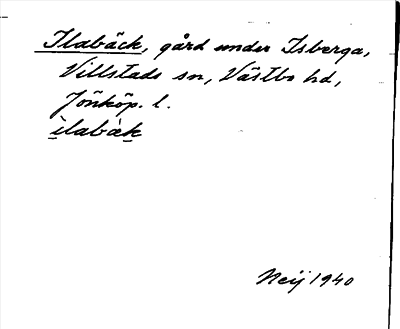 Ilabäck, gård under Isberga,
Villstads sn, Västbo hd,
Jönköp. l.
ìlabàk
Neij 1940